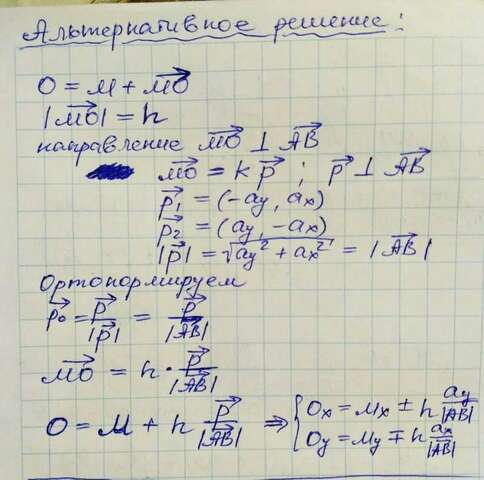 Альтернативное решение:
O = M + \overrightarrow{MO}
|\overrightarrow{MO}| = h
направление \overrightarrow{MO} ⊥ \overrightarrow{AB}
\overrightarrow{MO} = k \overrightarrow{p} ; \overrightarrow{p} ⊥ \overrightarrow{AB}
\overrightarrow{p_1} = (-ay, ax)
\overrightarrow{p_2} = (ay, -ax)
|\overrightarrow{p}| = \sqrt{ay^2 + ax^2} = |\overrightarrow{AB}|
Ортонормируем
\overrightarrow{p_0} = \frac{\overrightarrow{p}}{|\overrightarrow{p}|} = \frac{\overrightarrow{p}}{|\overrightarrow{AB}|}
\overrightarrow{MO} = h · \frac{\overrightarrow{p}}{|\overrightarrow{AB}|}
O = M + h \frac{\overrightarrow{p}}{|\overrightarrow{AB}|} ⇒ { Ox = Mx ± h \frac{ay}{|\overrightarrow{AB}|}
Oy = My ∓ h \frac{ax}{|\overrightarrow{AB}|}